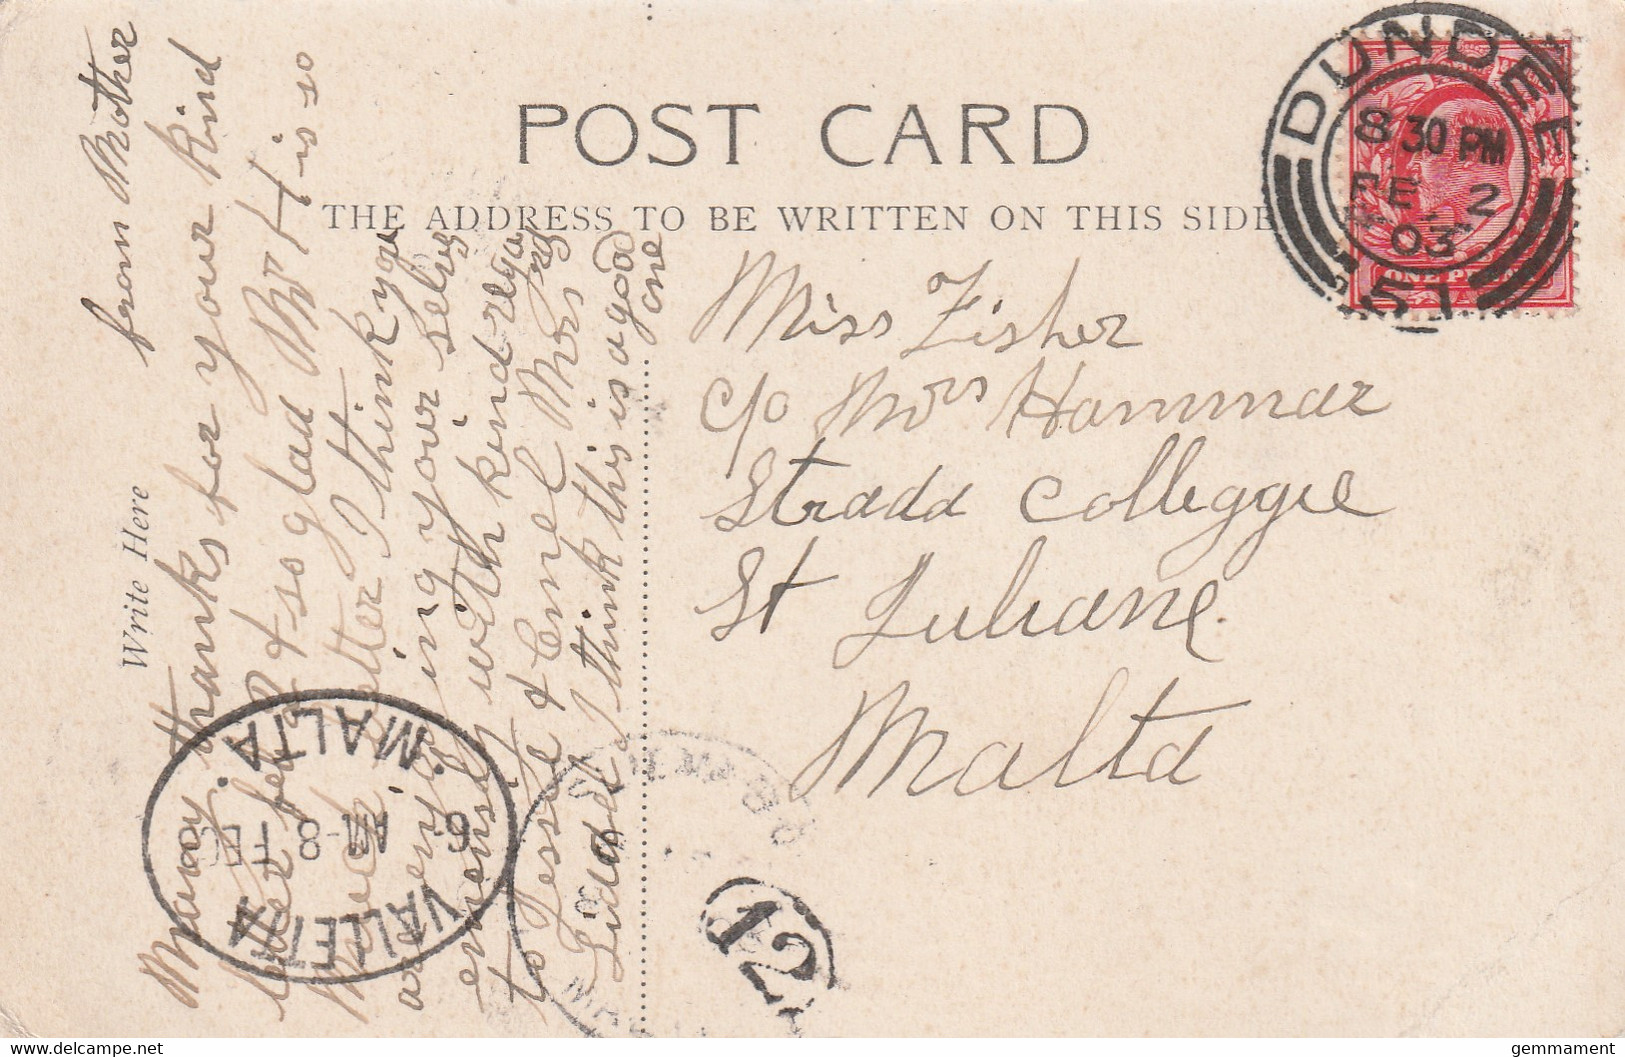 POST CARD
THE ADDRESS TO BE WRITTEN ON THIS SIDE
Write Here
from Mother
Many thanks for your kind
letter & so glad Mr H is so
Much better I think you
are enjoying your selves
with kind
to Jessie &
I think this is a good
one
Miss Fisher
c/o Mrs Hammar
Strada Colleggie
St Juliane
Malta
DUNDEE
8 30 PM
FE 2
03
51
VALLETTA
MALTA
12
Delcampe.net
gemmament